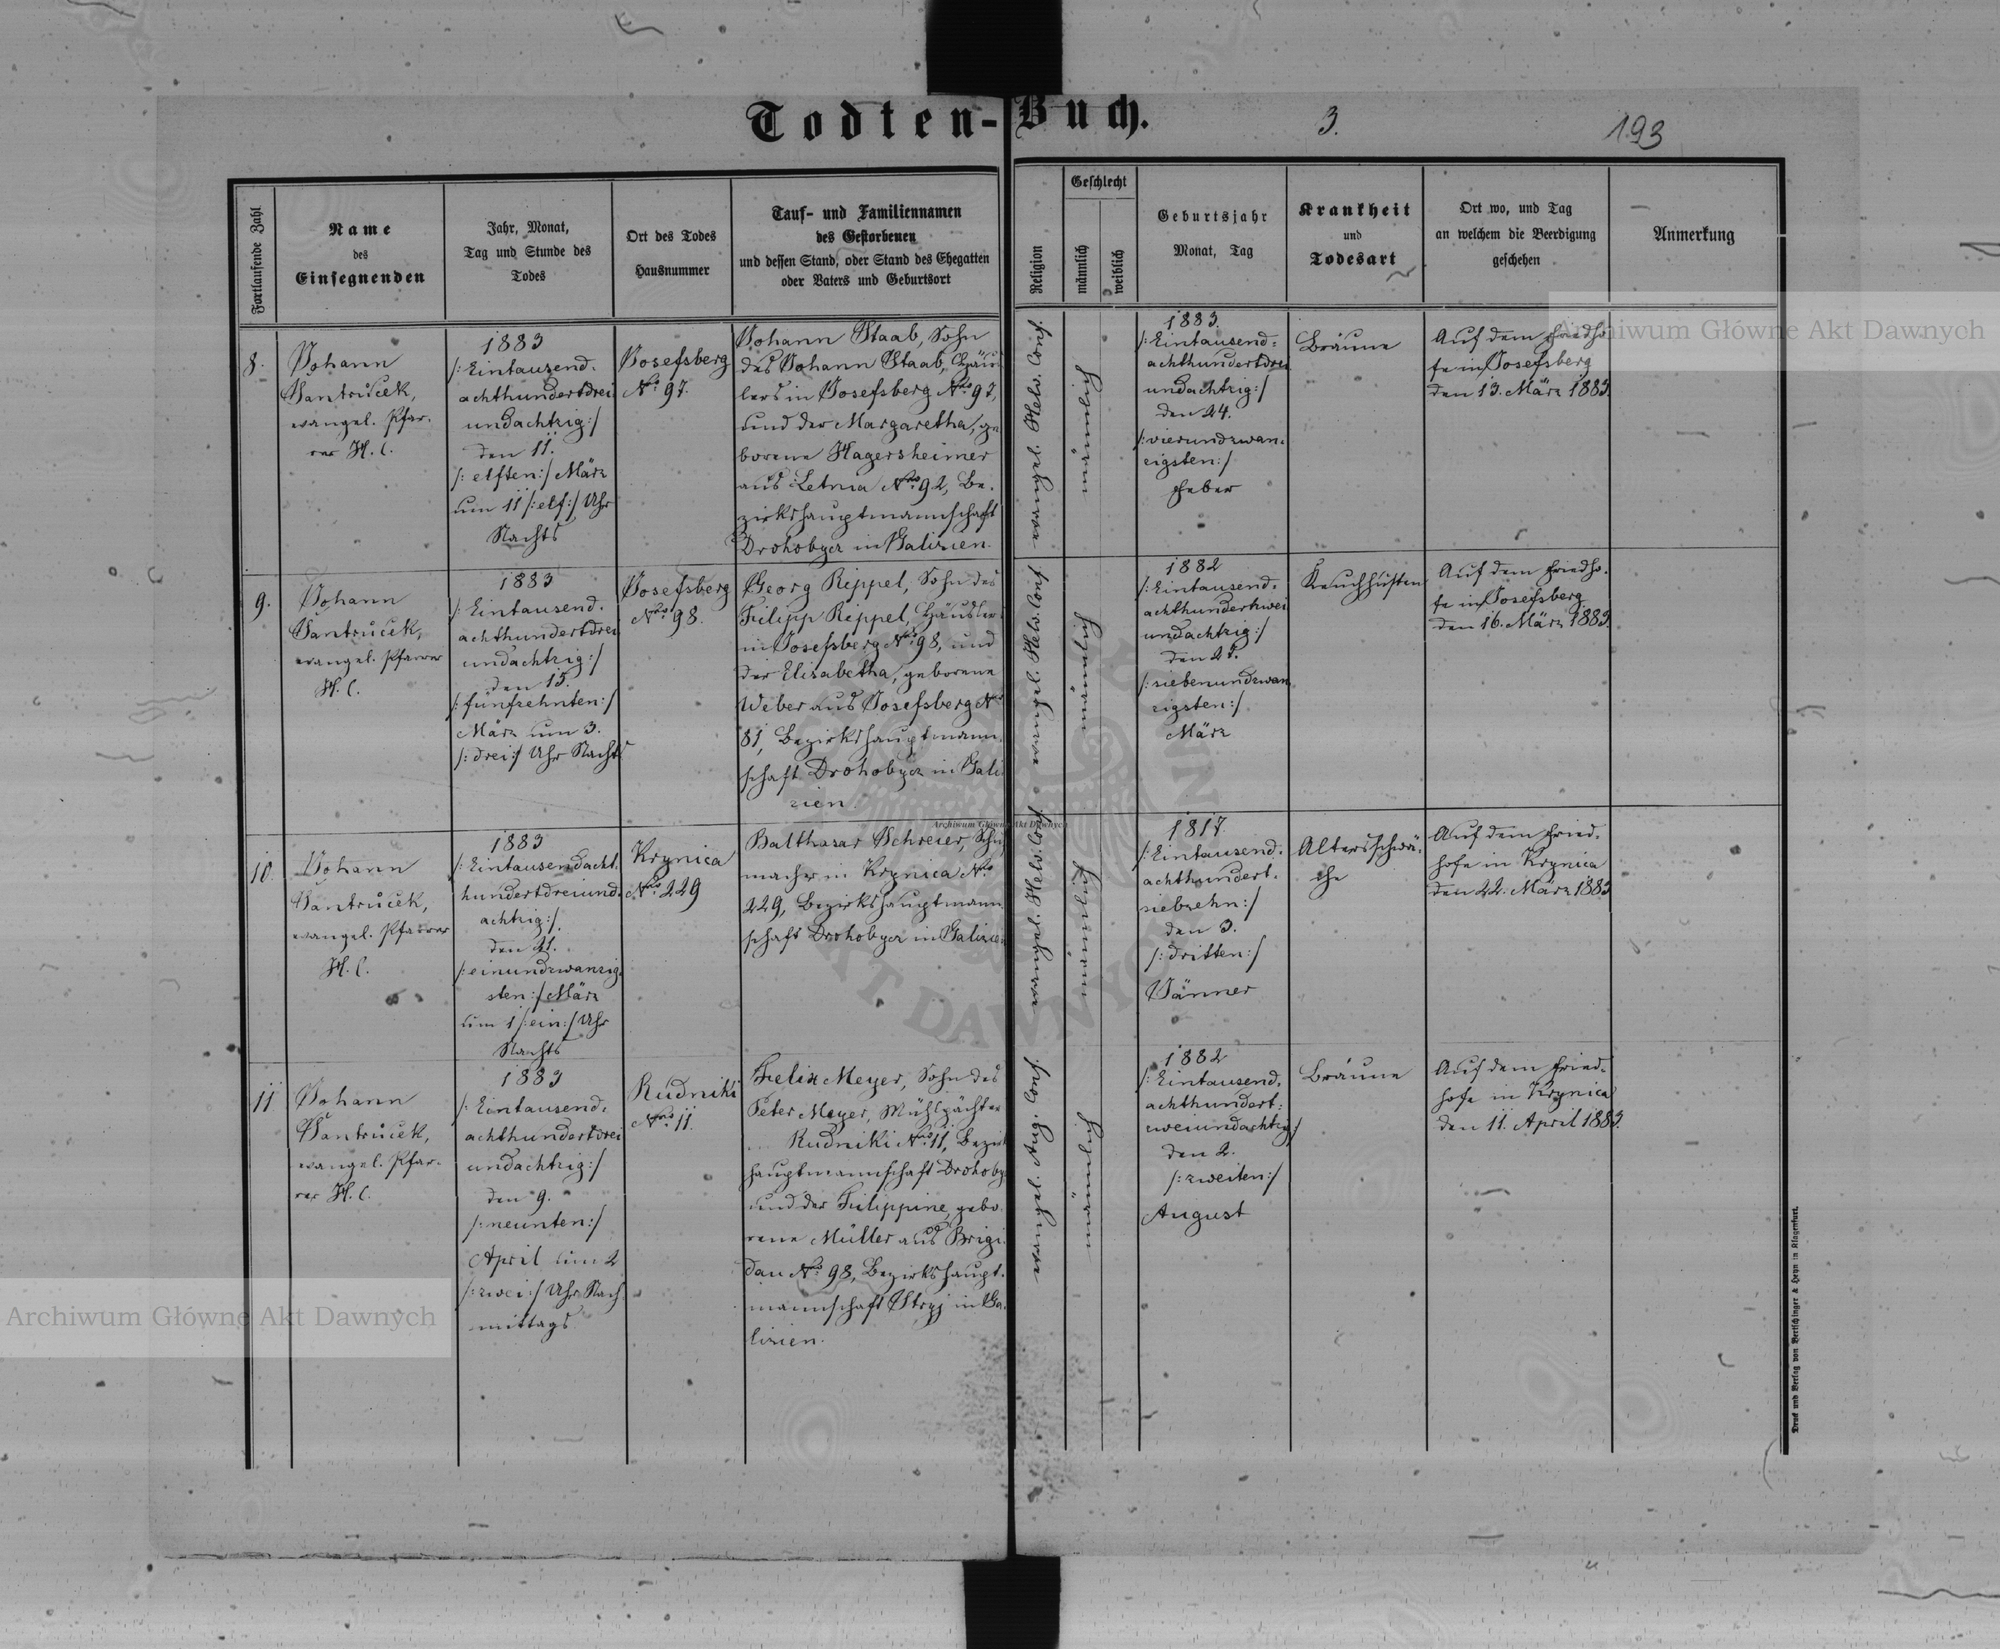 Todten-Buch.
3.
193
Fortlaufende Zahl
Name
des
Einsegnenden
Jahr, Monat,
Tag und Stunde des
Todes
Ort des Todes
Hausnummer
Tauf- und Familiennamen
des Gestorbenen
und dessen Stand, oder Stand des Ehegatten
oder Vaters und Geburtsort
Religion
Geschlecht
männlich
weiblich
Geburtsjahr
Monat, Tag
Krankheit
und
Todesart
Ort wo, und Tag
an welchem die Beerdigung
geschehen
Anmerkung
8.
Johann
Jantrůček,
evangel. Pfar-
rer H. C.
1883
/: Eintausend-
achthundertdrei
undachtzig :/
den 11.
/: elften :/ März
um 11 /: elf :/ Uhr
Nachts
Josefsberg
Nro 97.
Johann Staab, Sohn
des Johann Staab, Häus-
lers in Josefsberg Nro 97,
und der Margaretha, ge
borene Hagersheimer
aus Letnia Nro 92, Be-
zirkshauptmannschaft
Drohobycz in Galizien.
evangel. Helv. Conf.
männlich
1883.
/: Eintausend-
achthundertdrei
undachtzig :/
den 24.
/: vierundzwan-
zigsten :/
Feber
Bräune
Auf dem Friedho-
fe in Josefsberg
den 13. März 1883.
9.
Johann
Jantrůček,
evangel. Pfarrer
H. C.
1883
/: Eintausend-
achthundertdrei
undachtzig :/
den 15.
/: fünfzehnten :/
März um 3.
/: drei :/ Uhr Nachts
Josefsberg
Nro 98.
Georg Rippel, Sohn des
Filipp Rippel, Häuslers
in Josefsberg Nro 98, und
der Elisabetha, geborene
Weber aus Josefsberg Nro
81, Bezirkshauptmann-
schaft Drohobycz in Gali
zien.
evangel. Helv. Conf
männlich
1882
/: Eintausend-
achthundertzwei
undachtzig :/
den 27.
/: siebenundzwan
zigsten :/
März
Keuchhusten
Auf dem Friedho-
fe in Josefsberg
den 16. März 1883.
10.
Johann
Jantrůček,
evangel. Pfarrer
H. C.
1883
/: Eintausendacht-
hundertdreiund-
achtzig :/
den 21.
/: einundzwanzig-
sten :/ März
um 1 /: ein :/ Uhr
Nachts
Krynica
Nro 229
Balthasar Schreier, Schuh
macher in Krynica Nro
229, Bezirkshauptmann
schaft Drohobycz in Galizien
evangel. Helv. Conf
männlich
1817
/: Eintausend-
achthundert-
siebzehn :/
den 3.
/: dritten :/
Jänner
Altersschwä-
che
Auf dem Fried-
hofe in Krynica
den 22. März 1883
11
Johann
Jantrůček,
evangel. Pfar-
rer H. C.
1883
/: Eintausend-
achthundertdrei
undachtzig :/
den 9.
/: neunten :/
April um 2
/: zwei :/ Uhr Nach-
mittags
Rudniki
Nro 11.
Felix Meyer, Sohn des
Peter Meyer, Mühlpächter
Rudniki Nro 11, Bezirks
hauptmannschaft Drohobycz
und der Filippine, gebo
rene Müller aus Brigi-
dau Nro 98, Bezirkshaupt-
mannschaft Stryj in Ga-
lizien.
evangel. Aug. Conf.
männlich
1882
/: Eintausend-
achthundert-
zweiundachtzig :/
den 2.
/: zweiten :/
August
Bräune
Auf dem Fried-
hofe in Krynica
den 11. April 1883.
Druck und Verlag von Bertschinger & Heyn in Klagenfurt.
Archiwum Główne Akt Dawnych
Archiwum Główne Akt Dawnych
Archiwum Główne Akt Dawnych